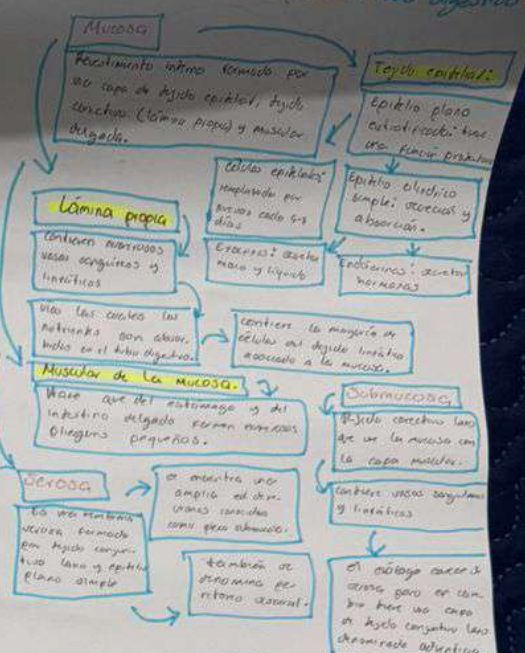 digestivo
Mucosa
Revestimiento interno formado por
una capa de tejido epitelial, tejido
conectivo (lámina propia) y muscular
delgada.
Tejido epitelial:
Epitelio plano
estratificado: tiene
una función protectora
Epitelio cilíndrico
simple: secreción y
absorción.
Células epiteliales:
remplazadas por
nuevas cada 5-7
días
Exocrinas: secretar
moco y líquido
Endócrinas: secretar
hormonas
Lámina propia
Contienen numerosos
vasos sanguíneos y
linfáticos
vías las cuales los
nutrientes son absor-
bidos en el tubo digestivo.
Contiene la mayoría de
células del tejido linfático
asociado a la mucosa.
Muscular de la mucosa.
Hace que del estómago y del
intestino delgado formen numerosos
pliegues pequeños.
Submucosa
Tejido conectivo laxo
que une la mucosa con
la capa muscular.
Contiene vasos sanguíneos
y linfáticos
Serosa
Es una membrana
serosa formada
por tejido conjun-
tivo laxo y epitelio
plano simple
se encuentra una
amplia red de
conocidas
como plexo
también se
denomina pe-
ritoneo visceral.
el esófago carece de
serosa pero en cam-
bio tiene una capa
de tejido conjuntivo laxo
denominada adventicia